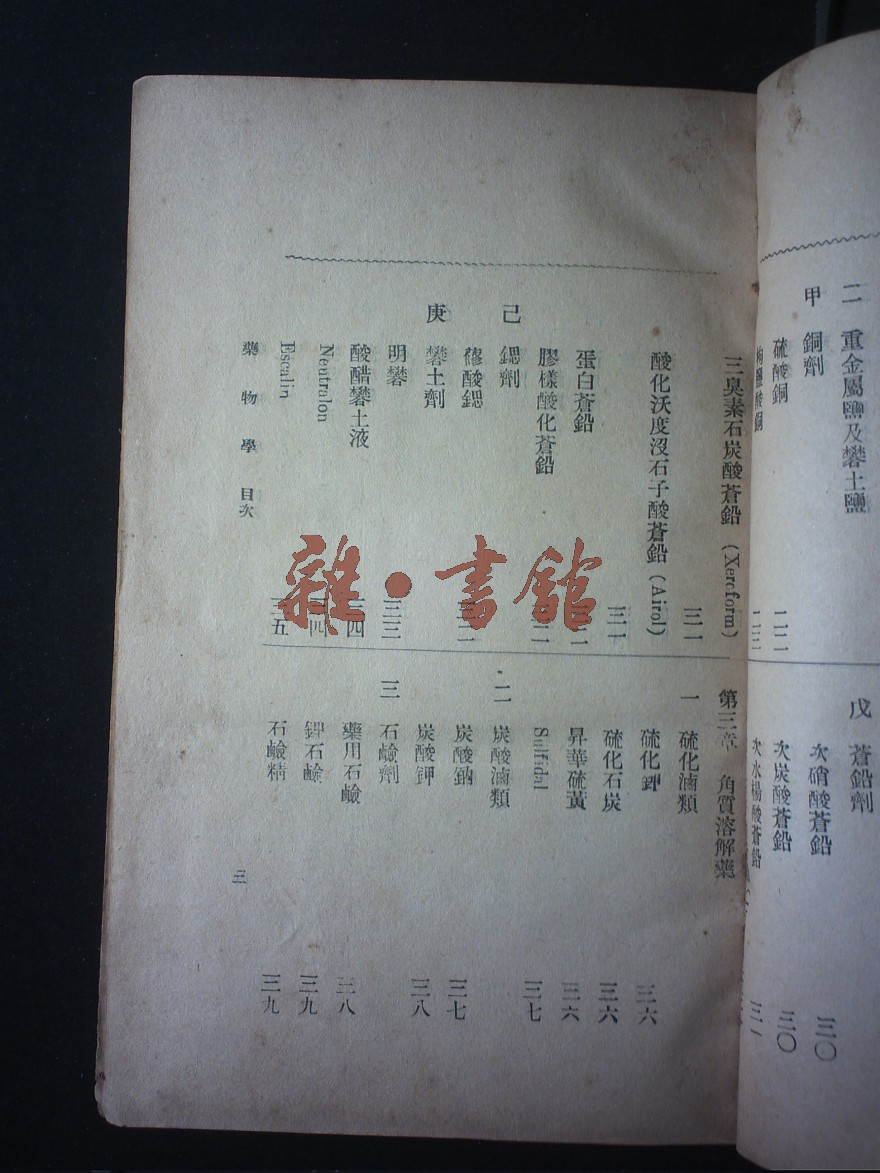 二 重金屬鹽及礬土鹽
甲 銅劑
硫酸銅 二二
二三
戊 蒼鉛劑
次硝酸蒼鉛 三〇
次炭酸蒼鉛 三〇
次水楊酸蒼鉛 三一
三臭素石炭酸蒼鉛(Xeroform)
三一
酸化沃度沒石子酸蒼鉛(Airol)
三一
蛋白蒼鉛
膠樣酸化蒼鉛
己 鍶劑
蓚酸鍶
庚 礬土劑
明礬 三三
酸醋礬土液 三四
Neutralon 三四
Escalin 三五
藥物學 目次
第三章 角質溶解藥
一 硫化滷類
硫化鉀 三六
硫化石炭 三六
昇華硫黃 三六
Sulfidal 三七
二 炭酸滷類
炭酸鈉 三七
炭酸鉀 三八
三 石鹼劑
藥用石鹼 三八
鉀石鹼 三九
石鹼精 三九
三
雜·書館